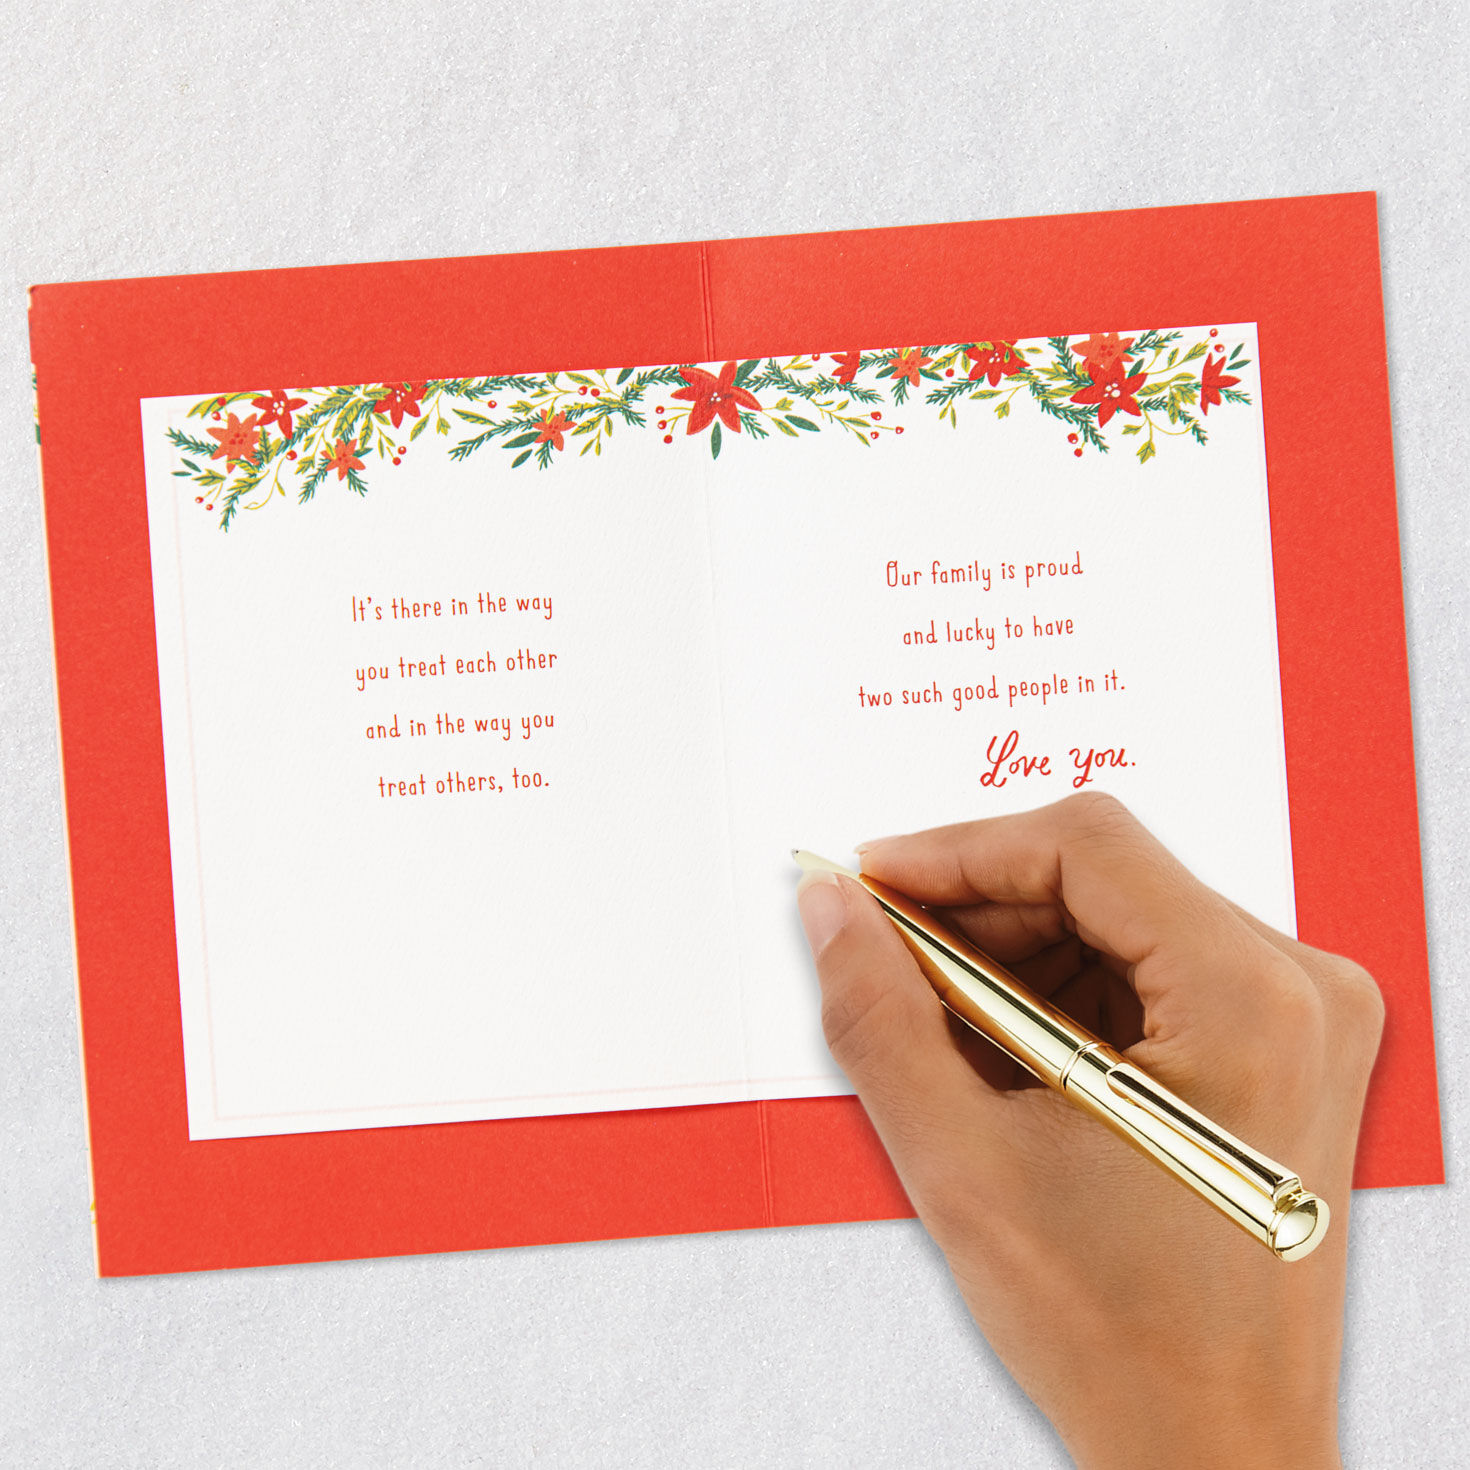 It's there in the way
you treat each other
and in the way you
treat others, too.
Our family is proud
and lucky to have
two such good people in it.
Love you.